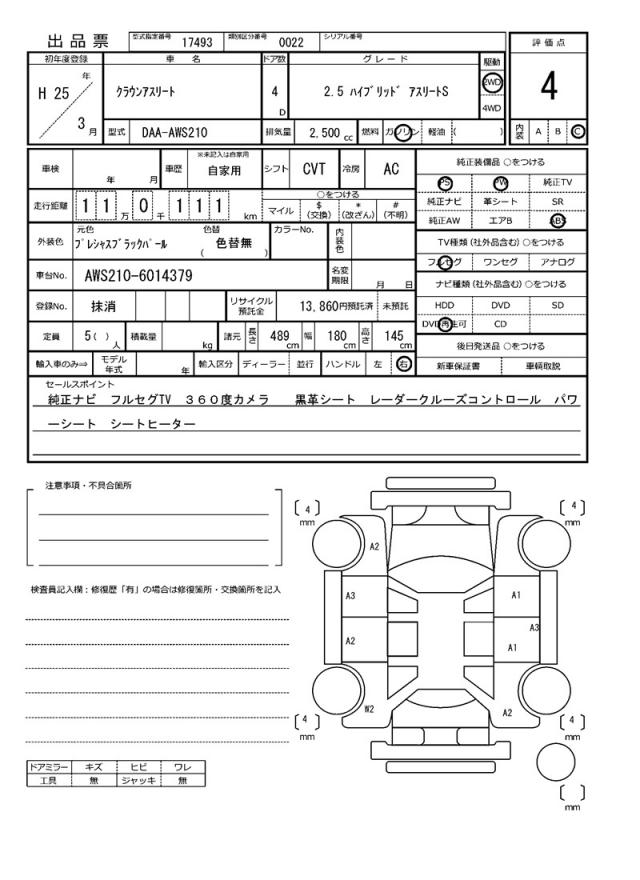 出品票 型式指定番号 17493 類別区分番号 0022 シリアル番号
評価点
4
内装 A B C
初年度登録 車名 ドア数 グレード 駆動
H 25 年 3 月
クラウンアスリート 4 D 2.5 ハイブリッド アスリートS 2WD
4WD
型式 DAA-AWS210 排気量 2,500 cc 燃料 ガソリン 軽油 ( )
車検 年 月 車歴 ※未記入は自家用 自家用 シフト CVT 冷房 AC
走行距離 1 1 万 0 千 1 1 1 km
○をつける
マイル $ (交換) * (改ざん) # (不明)
外装色 元色 プレシャスブラックパール 色替 ( 色替無 ) カラーNo. 内装色
車台No. AWS210-6014379 名変期限 月 日
登録No. 抹消 リサイクル預託金 13,860円預託済 未預託
定員 5( ) 人 積載量 kg 諸元 長さ 489 cm 幅 180 cm 高さ 145 cm
輸入車のみ⇒ モデル年式 年 輸入区分 ディーラー 並行 ハンドル 左 右
純正装備品 ○をつける
PS PW 純正TV
純正ナビ 革シート SR
純正AW エアB ABS
TV種類 (社外品含む) ○をつける
フルセグ ワンセグ アナログ
ナビ種類 (社外品含む) ○をつける
HDD DVD SD
DVD再生可 CD
後日発送品 ○をつける
新車保証書 車輌取説
セールスポイント
純正ナビ フルセグTV 360度カメラ 黒革シート レーダークルーズコントロール パワ
ーシート シートヒーター
注意事項・不具合箇所
検査員記入欄：修復歴「有」の場合は修復箇所・交換箇所を記入
ドアミラー キズ ヒビ ワレ
工具 無 ジャッキ 無
4 mm
4 mm
A2
A3 A1
A3
A2 A1
W2 A2
4 mm
4 mm
mm